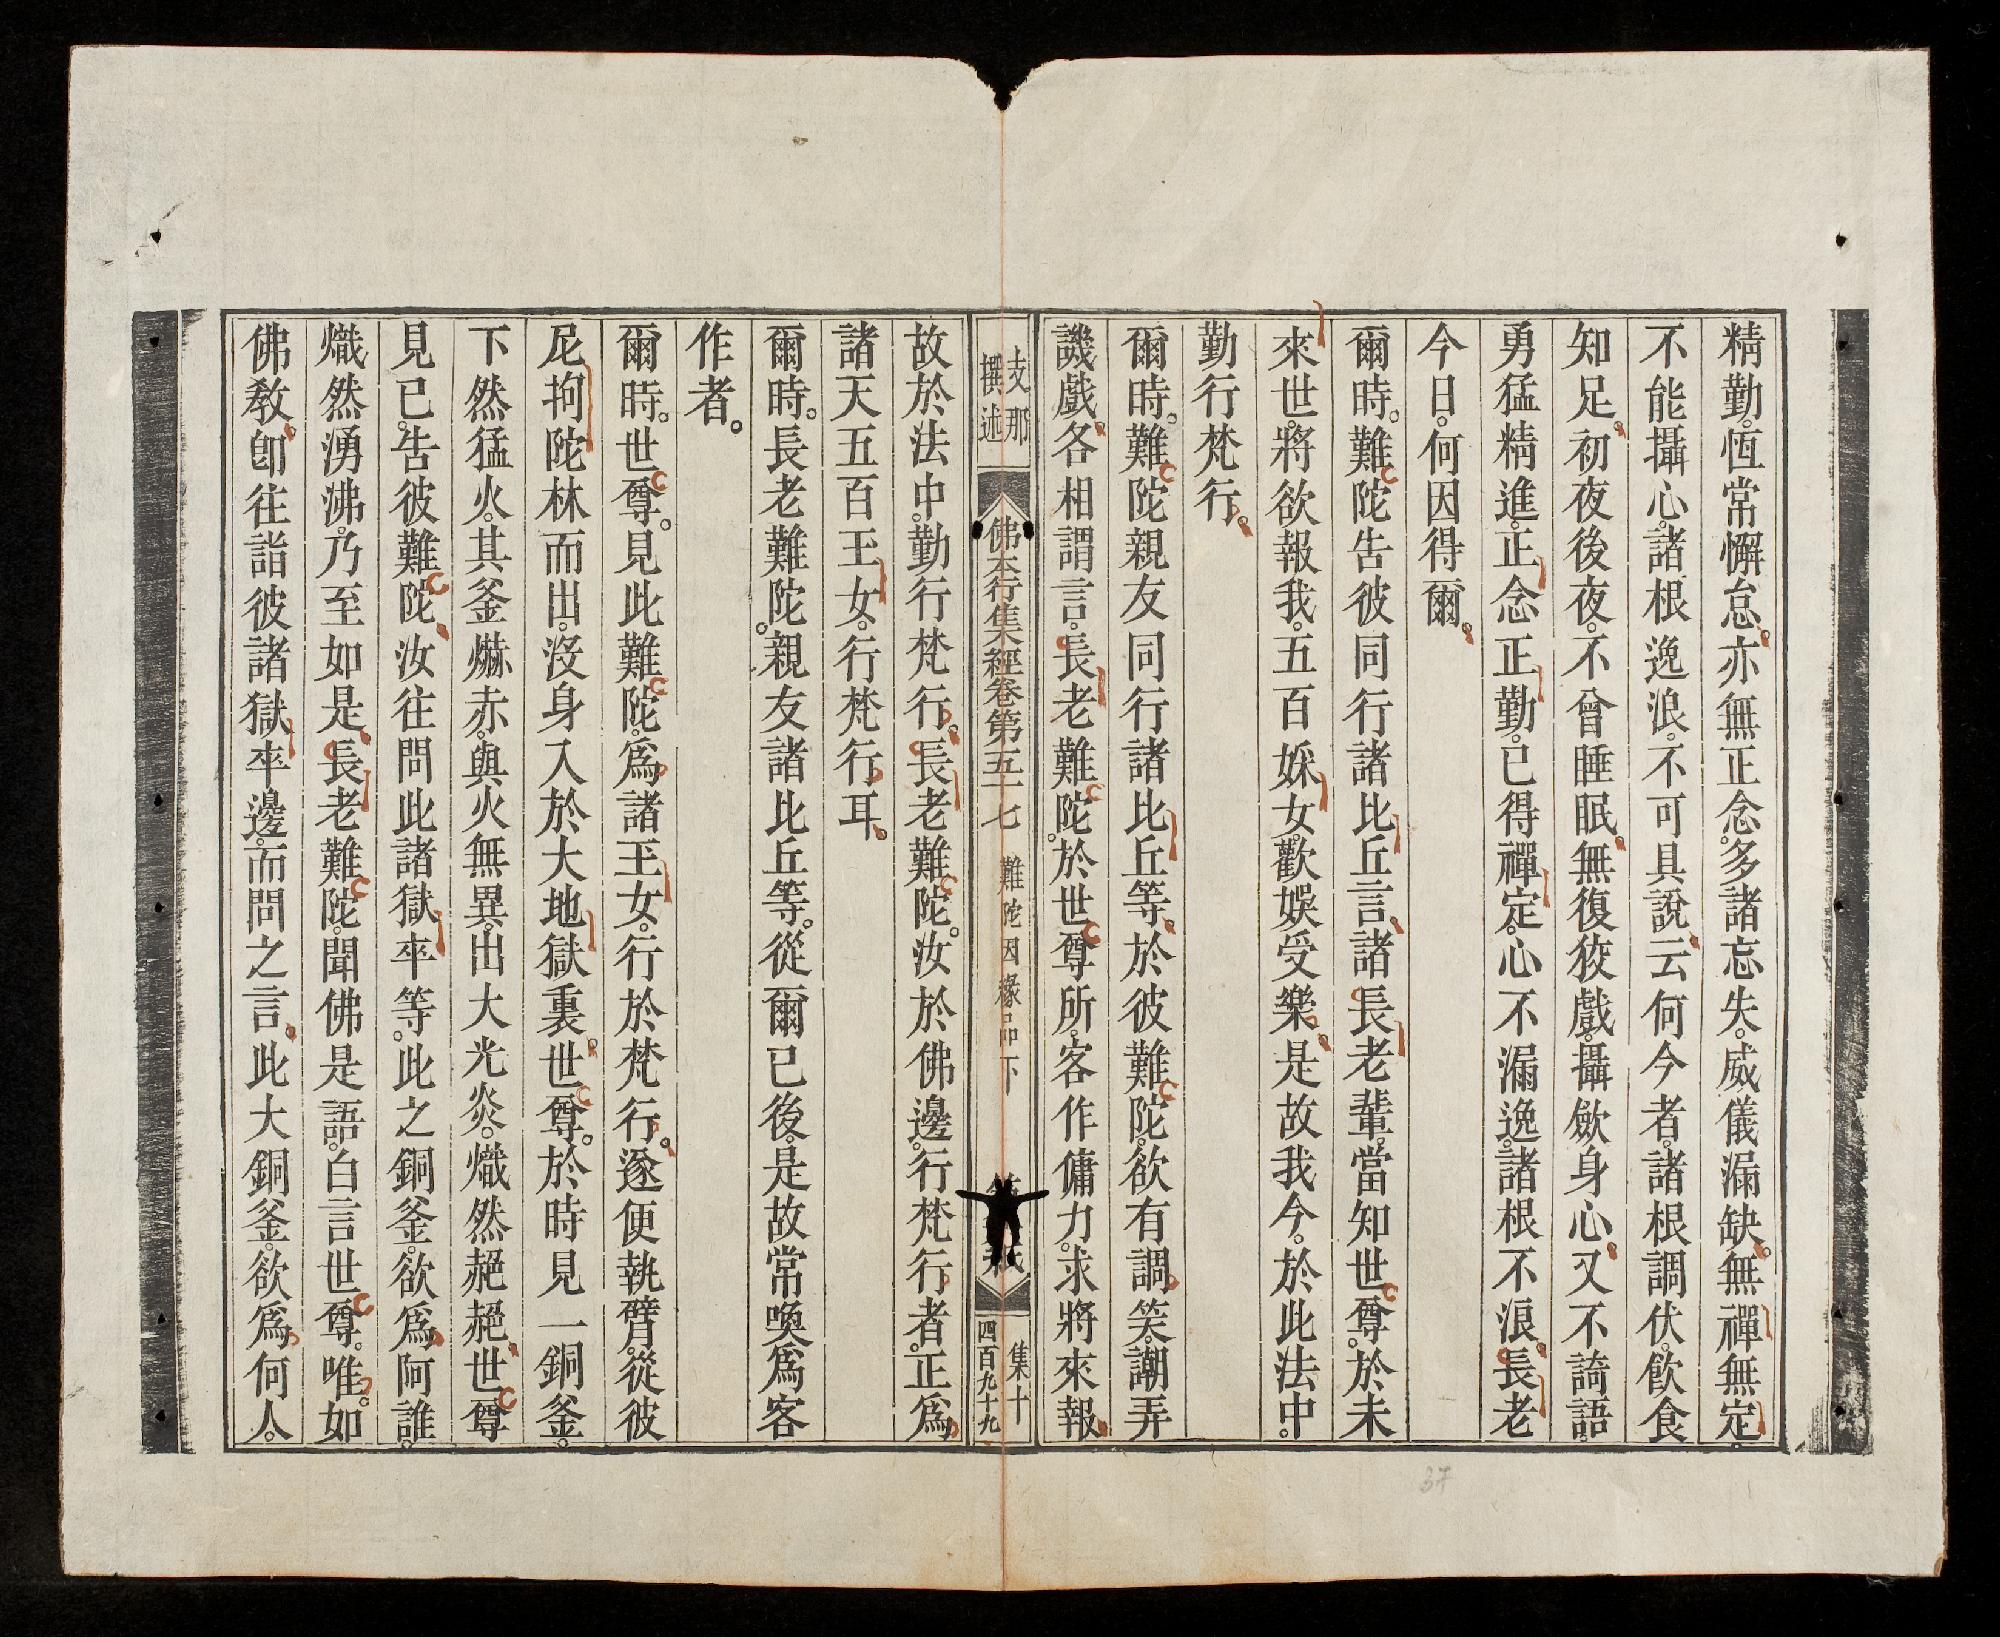 精勤。恆常懈怠。亦無正念。多諸忘失。威儀漏缺。無禪無定。
不能攝心。諸根逸浪。不可具說。云何今者。諸根調伏。飲食
知足。初夜後夜。不曾睡眠。無復狡戲。攝斂身心。又不詩語。
勇猛精進。正念正勤。已得禪定。心不漏逸。諸根不浪。長老
今日。何因得爾。
爾時。難陀告彼同行諸比丘言。諸長老輩。當知世尊。於未
來世。將欲報我。五百婇女。歡娛受樂。是故我今。於此法中。
勤行梵行。
爾時。難陀親友同行諸比丘等。於彼難陀。欲有調笑。謿弄
譏戲。各相謂言。長老難陀。於世尊所。客作傭力。求將來報
支那
撰述
佛本行集經卷第五十七 難陀因緣品下
集十
四百九十九
故於法中。勤行梵行。長老難陀。汝於佛邊。行梵行者。正爲
諸天五百玉女。行梵行耳。
爾時。長老難陀。親友諸比丘等。從爾已後。是故常喚爲客
作者。
爾時。世尊。見此難陀。爲諸玉女。行於梵行。遂便執臂。從彼
尼拘陀林而出。沒身入於大地獄裏。世尊。於時見一銅釜。
下然猛火。其釜爀赤。與火無異。出大光炎。熾然赩赩。世尊
見已。告彼難陀。汝往問此諸獄卒等。此之銅釜。欲爲阿誰。
熾然湧沸。乃至如是。長老難陀。聞佛是語。白言世尊。唯。如
佛教。卽往詣彼諸獄卒邊。而問之言。此大銅釜。欲爲何人。